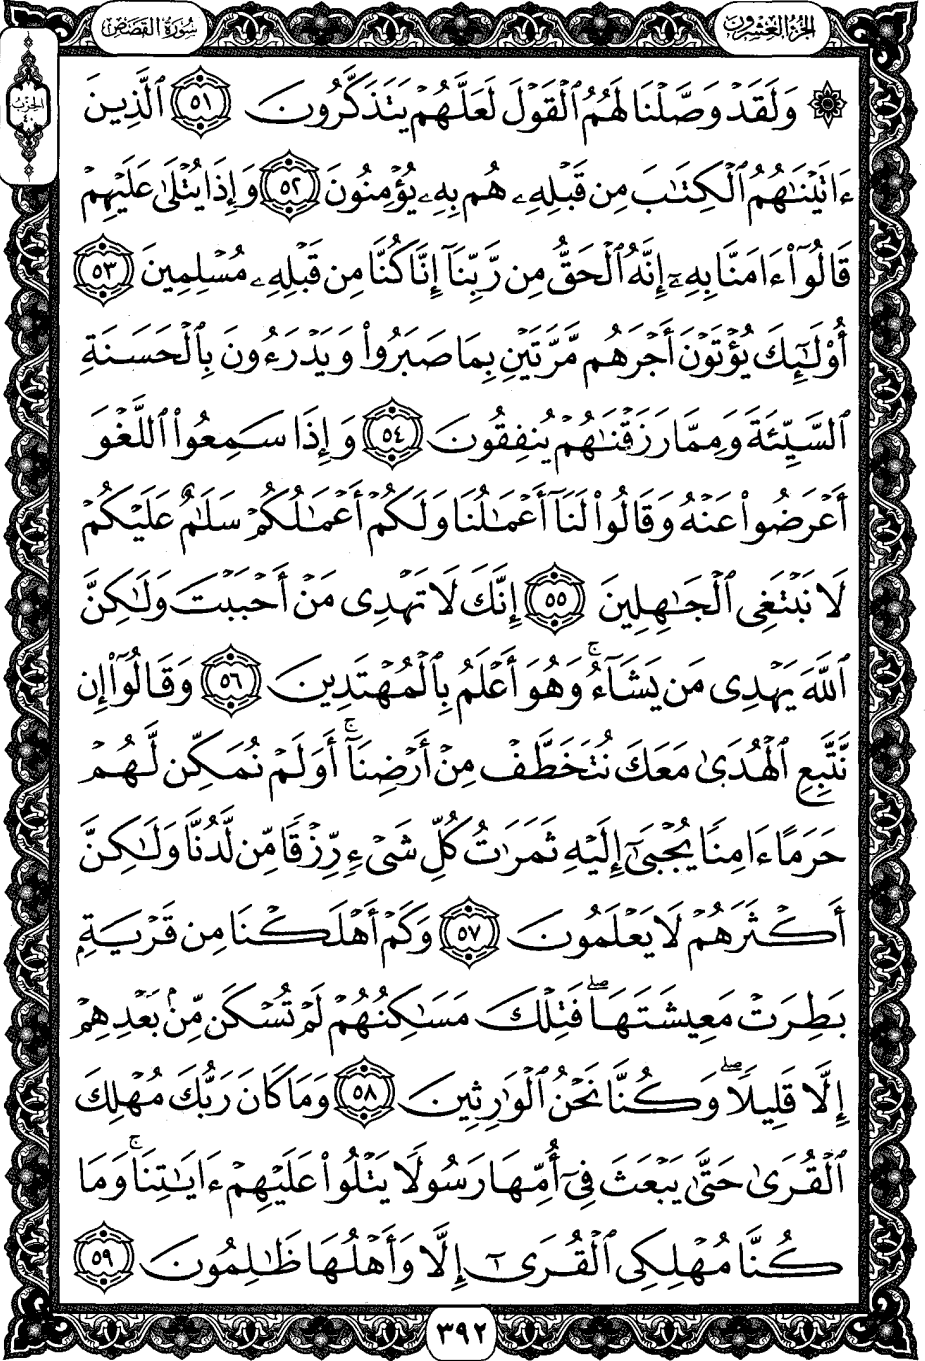 سُورَةُ القَصَصِ
الجُزْءُ العِشْرُونَ
الحِزْبُ
٤٠
۞ وَلَقَدْ وَصَّلْنَا لَهُمُ ٱلْقَوْلَ لَعَلَّهُمْ يَتَذَكَّرُونَ ٥١ ٱلَّذِينَ
ءَاتَيْنَٰهُمُ ٱلْكِتَٰبَ مِن قَبْلِهِۦ هُم بِهِۦ يُؤْمِنُونَ ٥٢ وَإِذَا يُتْلَىٰ عَلَيْهِمْ
قَالُوٓا۟ ءَامَنَّا بِهِۦٓ إِنَّهُ ٱلْحَقُّ مِن رَّبِّنَآ إِنَّا كُنَّا مِن قَبْلِهِۦ مُسْلِمِينَ ٥٣
أُو۟لَٰٓئِكَ يُؤْتَوْنَ أَجْرَهُم مَّرَّتَيْنِ بِمَا صَبَرُوا۟ وَيَدْرَءُونَ بِٱلْحَسَنَةِ
ٱلسَّيِّئَةَ وَمِمَّا رَزَقْنَٰهُمْ يُنفِقُونَ ٥٤ وَإِذَا سَمِعُوا۟ ٱللَّغْوَ
أَعْرَضُوا۟ عَنْهُ وَقَالُوا۟ لَنَآ أَعْمَٰلُنَا وَلَكُمْ أَعْمَٰلُكُمْ سَلَٰمٌ عَلَيْكُمْ
لَا نَبْتَغِى ٱلْجَٰهِلِينَ ٥٥ إِنَّكَ لَا تَهْدِى مَنْ أَحْبَبْتَ وَلَٰكِنَّ
ٱللَّهَ يَهْدِى مَن يَشَآءُ ۚ وَهُوَ أَعْلَمُ بِٱلْمُهْتَدِينَ ٥٦ وَقَالُوٓا۟ إِن
نَّتَّبِعِ ٱلْهُدَىٰ مَعَكَ نُتَخَطَّفْ مِنْ أَرْضِنَآ ۚ أَوَلَمْ نُمَكِّن لَّهُمْ
حَرَمًا ءَامِنًا يُجْبَىٰٓ إِلَيْهِ ثَمَرَٰتُ كُلِّ شَىْءٍ رِّزْقًا مِّن لَّدُنَّا وَلَٰكِنَّ
أَكْثَرَهُمْ لَا يَعْلَمُونَ ٥٧ وَكَمْ أَهْلَكْنَا مِن قَرْيَةٍۭ
بَطِرَتْ مَعِيشَتَهَا ۖ فَتِلْكَ مَسَٰكِنُهُمْ لَمْ تُسْكَن مِّنۢ بَعْدِهِمْ
إِلَّا قَلِيلًا ۖ وَكُنَّا نَحْنُ ٱلْوَٰرِثِينَ ٥٨ وَمَا كَانَ رَبُّكَ مُهْلِكَ
ٱلْقُرَىٰ حَتَّىٰ يَبْعَثَ فِىٓ أُمِّهَا رَسُولًا يَتْلُوا۟ عَلَيْهِمْ ءَايَٰتِنَا ۚ وَمَا
كُنَّا مُهْلِكِى ٱلْقُرَىٰٓ إِلَّا وَأَهْلُهَا ظَٰلِمُونَ ٥٩
٣٩٢